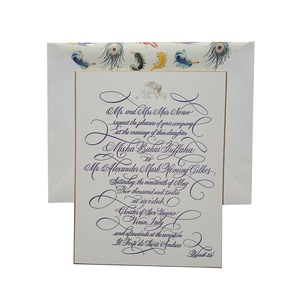 Mr and Mrs Meir Nonoo
request the pleasure of your company
at the marriage of their daughter
Misha Bahia
to
Mr Alexander Mark Fleming
Saturday, the nineteenth of May
Two thousand and twelve
at six o'clock
San
Venice, Italy
and afterwards at the reception
Black tie